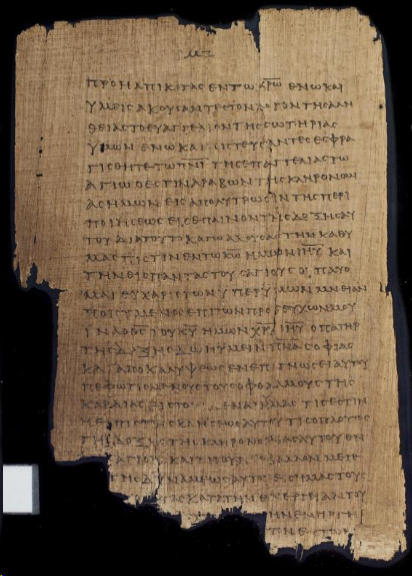 ΠΡΟΗΛΠΙΚΟΤΑΣ ΕΝ ΤΩ ΧΡΩ ΕΝ Ω ΚΑΙ
ΥΜΕΙΣ ΑΚΟΥΣΑΝΤΕΣ ΤΟΝ ΛΟΓΟΝ ΤΗΣ ΑΛΗ
ΘΕΙΑΣ ΤΟ ΕΥΑΓΓΕΛΙΟΝ ΤΗΣ ΣΩΤΗΡΙΑΣ
ΥΜΩΝ ΕΝ Ω ΚΑΙ ΠΙΣΤΕΥΣΑΝΤΕΣ ΕΣΦΡΑ
ΓΙΣΘΗΤΕ ΤΩ ΠΝΙ ΤΗΣ ΕΠΑΓΓΕΛΙΑΣ ΤΩ
ΑΓΙΩ Ο ΕΣΤΙΝ ΑΡΑΒΩΝ ΤΗΣ ΚΛΗΡΟΝΟΜΙ
ΑΣ ΗΜΩΝ ΕΙΣ ΑΠΟΛΥΤΡΩΣΙΝ ΤΗΣ ΠΕΡΙ
ΠΟΙΗΣΕΩΣ ΕΙΣ ΕΠΑΙΝΟΝ ΤΗΣ ΔΟΞΗΣ ΑΥ
ΤΟΥ ΔΙΑ ΤΟΥΤΟ ΚΑΓΩ ΑΚΟΥΣΑΣ ΤΗΝ ΚΑΘ Υ
ΜΑΣ ΠΙΣΤΙΝ ΕΝ ΤΩ ΚΩ ΙΗΥ ΚΑΙ
ΤΗΝ ΕΙΣ ΠΑΝΤΑΣ ΤΟΥΣ ΑΓΙΟΥΣ ΟΥ ΠΑΥΟ
ΜΑΙ ΕΥΧΑΡΙΣΤΩΝ ΥΠΕΡ ΥΜΩΝ ΜΝΕΙΑΝ
ΠΟΙΟΥΜΕΝΟΣ ΕΠΙ ΤΩΝ ΠΡΟΣΕΥΧΩΝ ΜΟΥ
ΙΝΑ Ο ΘΣ ΤΟΥ ΚΥ ΗΜΩΝ ΧΡΥ ΙΗΥ Ο ΠΑΤΗΡ
ΤΗΣ ΔΟΞΗΣ ΔΩΗ ΥΜΕΙΝ ΠΝΑ ΣΟΦΙΑΣ
ΚΑΙ ΑΠΟΚΑΛΥΨΕΩΣ ΕΝ ΕΠΙΓΝΩΣΕΙ ΑΥΤΟΥ
ΠΕΦΩΤΙΣΜΕΝΟΥΣ ΤΟΥΣ ΟΦΘΑΛΜΟΥΣ ΤΗΣ
ΚΑΡΔΙΑΣ ΕΙΣ ΤΟ ΥΜΑΣ ΤΙΣ ΕΣΤΙΝ
Η ΕΛΠΙΣ ΤΗΣ ΚΛΗΣΕΩΣ ΑΥΤΟΥ ΤΙΣ Ο ΠΛΟΥΤΟΣ
ΤΗΣ ΔΟΞΗΣ ΤΗΣ ΚΛΗΡΟΝΟΜΙΑΣ ΑΥΤΟΥ ΕΝ
ΚΑΙ ΤΙ ΤΟ ΜΕΓΕ
ΤΗΣ ΔΥΝΑΜΕΩΣ ΑΥΤΟΥ ΕΙΣ ΗΜΑΣ ΤΟΥΣ
ΚΑΤΑ ΤΗΝ ΕΝΕΡΓΕΙΑΝ ΤΟΥ